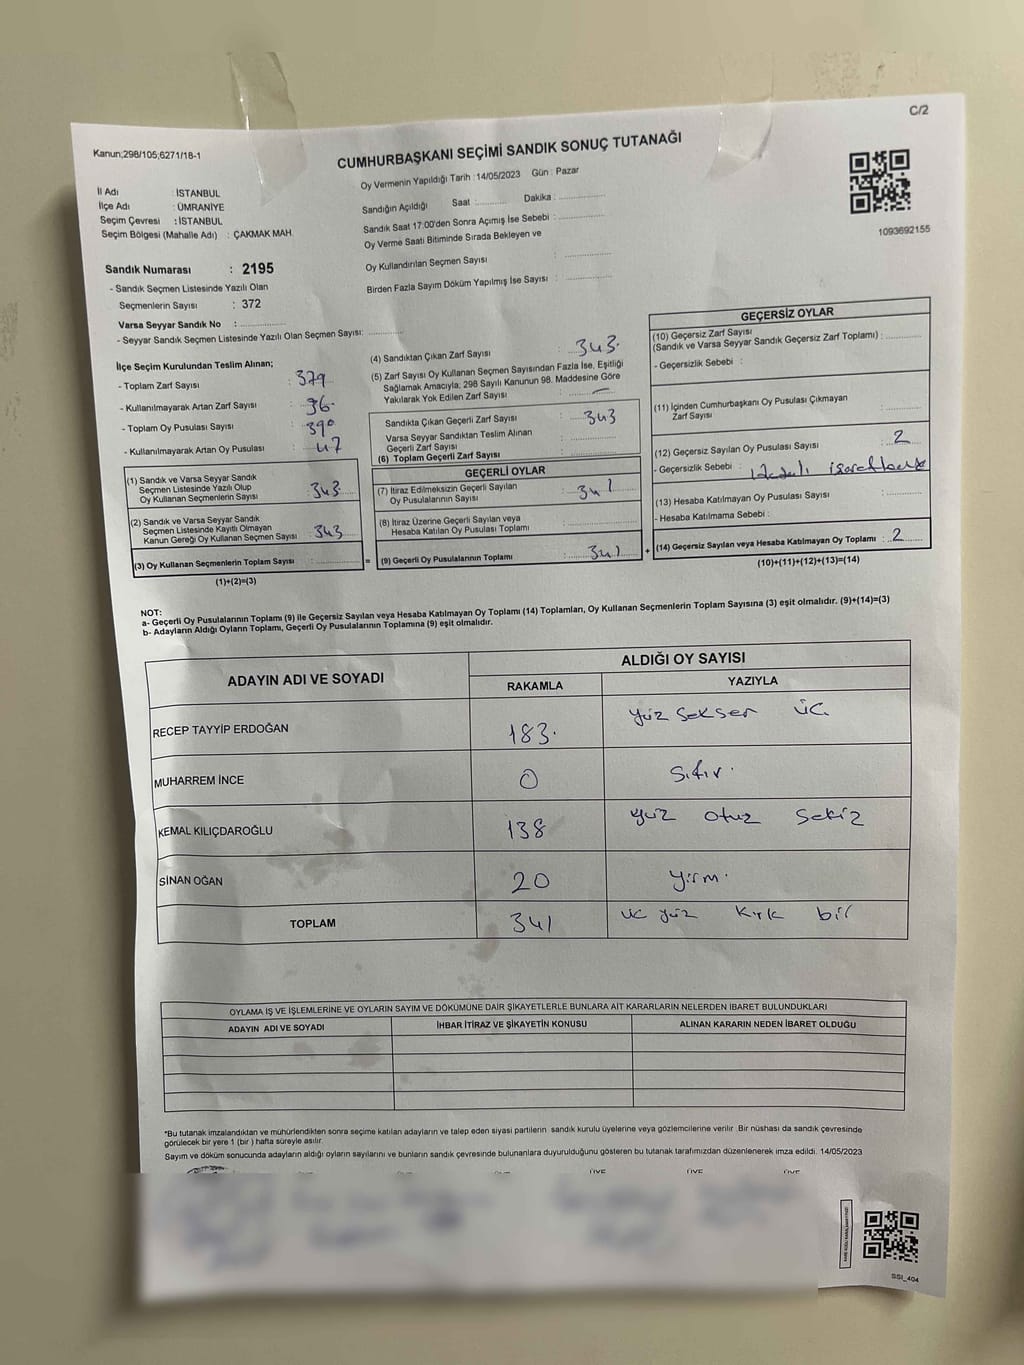 C/2
Kanun;298/105;6271/18-1
CUMHURBAŞKANI SEÇİMİ SANDIK SONUÇ TUTANAĞI
Oy Vermenin Yapıldığı Tarih : 14/05/2023 Gün : Pazar
İl Adı : İSTANBUL
İlçe Adı : ÜMRANİYE
Seçim Çevresi : İSTANBUL
Seçim Bölgesi (Mahalle Adı) : ÇAKMAK MAH.
Sandığın Açıldığı Saat : Dakika :
Sandık Saat 17:00'den Sonra Açımış İse Sebebi :
Oy Verme Saati Bitiminde Sırada Bekleyen ve
Oy Kullandırılan Seçmen Sayısı :
Birden Fazla Sayım Döküm Yapılmış İse Sayısı :
1093692155
Sandık Numarası : 2195
- Sandık Seçmen Listesinde Yazılı Olan
Seçmenlerin Sayısı : 372
Varsa Seyyar Sandık No :
- Seyyar Sandık Seçmen Listesinde Yazılı Olan Seçmen Sayısı:
İlçe Seçim Kurulundan Teslim Alınan;
- Toplam Zarf Sayısı : 379
- Kullanılmayarak Artan Zarf Sayısı : 36.
- Toplam Oy Pusulası Sayısı : 390
- Kullanılmayarak Artan Oy Pusulası : 47
(1) Sandık ve Varsa Seyyar Sandık
Seçmen Listesinde Yazılı Olup
Oy Kullanan Seçmenlerin Sayısı : 343
(2) Sandık ve Varsa Seyyar Sandık
Seçmen Listesinde Kayıtlı Olmayan
Kanun Gereği Oy Kullanan Seçmen Sayısı : 343
(3) Oy Kullanan Seçmenlerin Toplam Sayısı :
(1)+(2)=(3)
(4) Sandıktan Çıkan Zarf Sayısı : 343.
(5) Zarf Sayısı Oy Kullanan Seçmen Sayısından Fazla İse, Eşitliği
Sağlamak Amacıyla, 298 Sayılı Kanunun 98. Maddesine Göre
Yakılarak Yok Edilen Zarf Sayısı : —
Sandıkta Çıkan Geçerli Zarf Sayısı : 343
Varsa Seyyar Sandıktan Teslim Alınan
Geçerli Zarf Sayısı :
(6) Toplam Geçerli Zarf Sayısı :
GEÇERLİ OYLAR
(7) İtiraz Edilmeksizin Geçerli Sayılan
Oy Pusulalarının Sayısı : 341
(8) İtiraz Üzerine Geçerli Sayılan veya
Hesaba Katılan Oy Pusulası Toplamı :
= (9) Geçerli Oy Pusulalarının Toplamı : 341
GEÇERSİZ OYLAR
(10) Geçersiz Zarf Sayısı
(Sandık ve Varsa Seyyar Sandık Geçersiz Zarf Toplamı) :
- Geçersizlik Sebebi :
(11) İçinden Cumhurbaşkanı Oy Pusulası Çıkmayan
Zarf Sayısı :
(12) Geçersiz Sayılan Oy Pusulası Sayısı : 2
- Geçersizlik Sebebi :
(13) Hesaba Katılmayan Oy Pusulası Sayısı :
- Hesaba Katılmama Sebebi :
+ (14) Geçersiz Sayılan veya Hesaba Katılmayan Oy Toplamı : 2
(10)+(11)+(12)+(13)=(14)
NOT:
a- Geçerli Oy Pusulalarının Toplamı (9) ile Geçersiz Sayılan veya Hesaba Katılmayan Oy Toplamı (14) Toplamları, Oy Kullanan Seçmenlerin Toplam Sayısına (3) eşit olmalıdır. (9)+(14)=(3)
b- Adayların Aldığı Oyların Toplamı, Geçerli Oy Pusulalarının Toplamına (9) eşit olmalıdır.
ADAYIN ADI VE SOYADI
ALDIĞI OY SAYISI
RAKAMLA YAZIYLA
RECEP TAYYİP ERDOĞAN 183. yüz seksen üç
MUHARREM İNCE 0 sıfır.
KEMAL KILIÇDAROĞLU 138 yüz otuz sekiz
SİNAN OĞAN 20 yirmi
TOPLAM 341 üç yüz kırk bir
OYLAMA İŞ VE İŞLEMLERİNE VE OYLARIN SAYIM VE DÖKÜMÜNE DAİR ŞİKAYETLERLE BUNLARA AİT KARARLARIN NELERDEN İBARET BULUNDUKLARI
ADAYIN ADI VE SOYADI İHBAR İTİRAZ VE ŞİKAYETİN KONUSU ALINAN KARARIN NEDEN İBARET OLDUĞU
*Bu tutanak imzalandıktan ve mühürlendikten sonra seçime katılan adayların ve talep eden siyasi partilerin sandık kurulu üyelerine veya gözlemcilerine verilir. Bir nüshası da sandık çevresinde
görülecek bir yere 1 (bir ) hafta süreyle asılır.
Sayım ve döküm sonucunda adayların aldığı oyların sayılarını ve bunların sandık çevresinde bulunanlara duyurulduğunu gösteren bu tutanak tarafımızdan düzenlenerek imza edildi. 14/05/2023
ÜYE ÜYE ÜYE
SSI_404